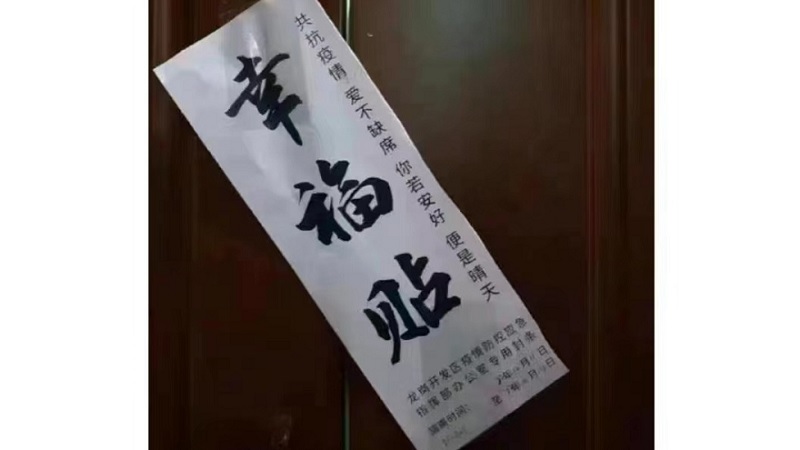 共抗疫情 爱不缺席 你若安好 便是晴天
幸福贴
龙岗开发区疫情防控应急
指挥部办公室专用封条
隔离时间：
年 月 日
至 年 月 日